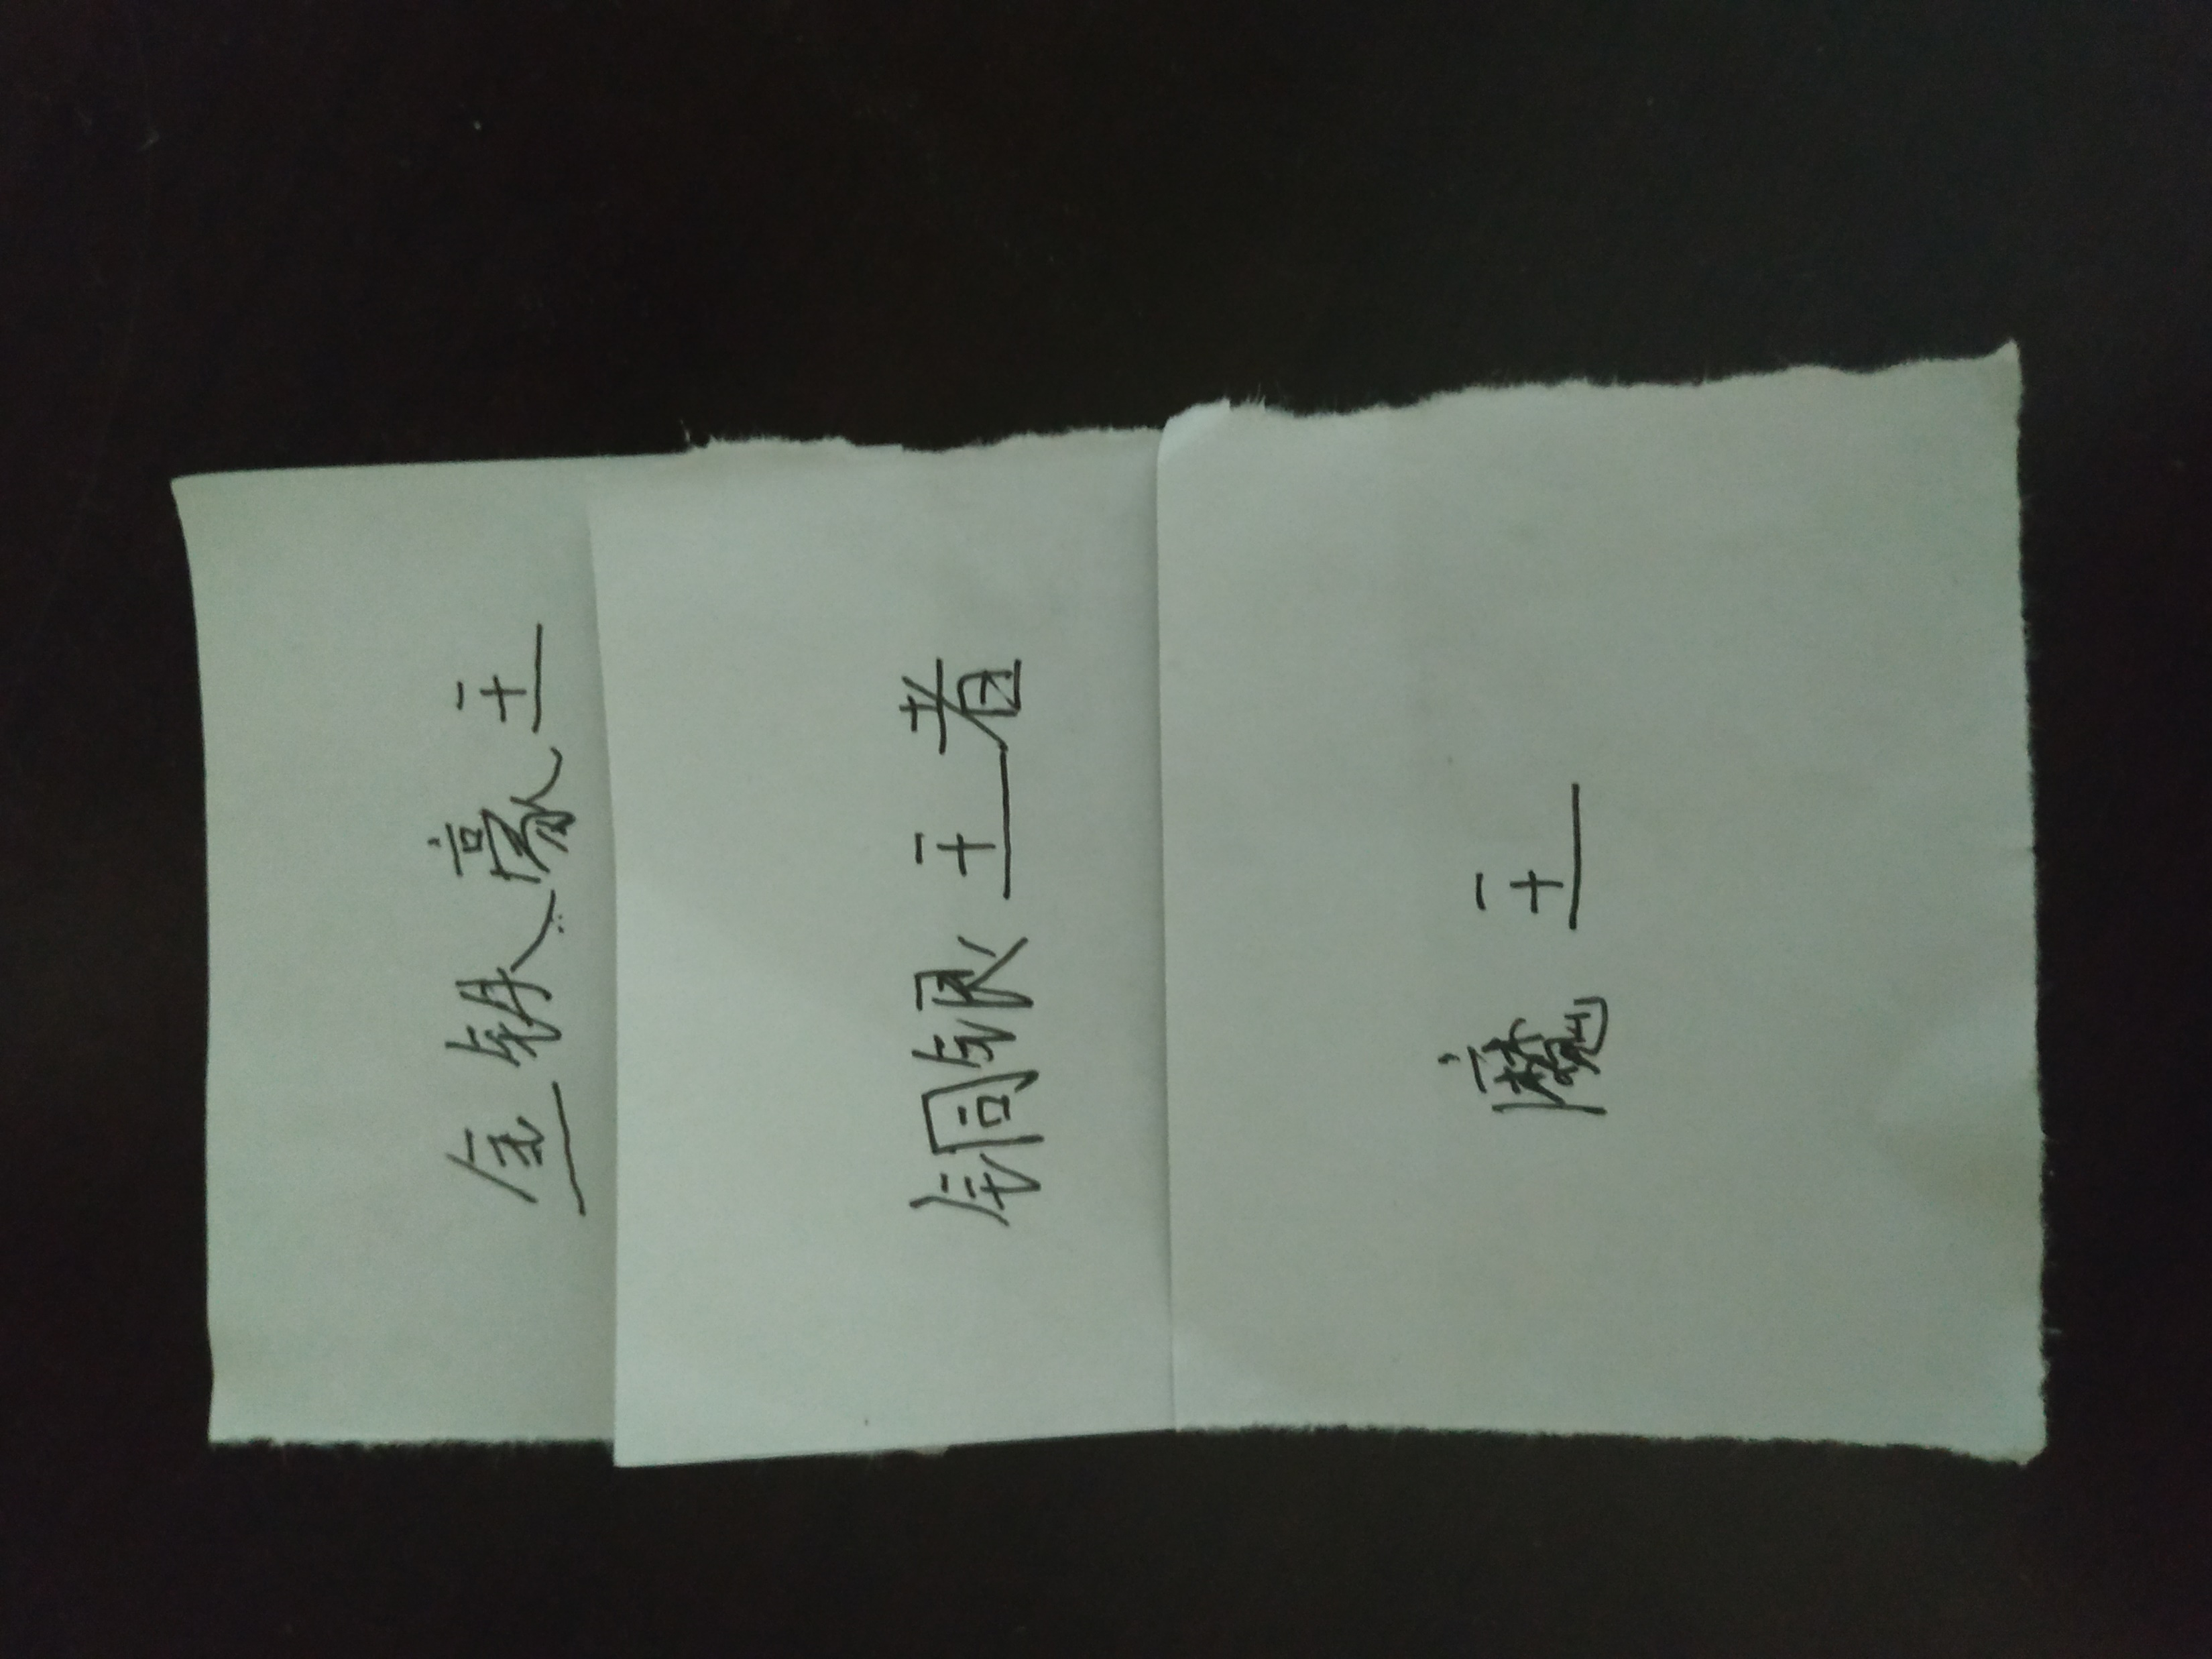 金铁豪王
铜银王者
魔王